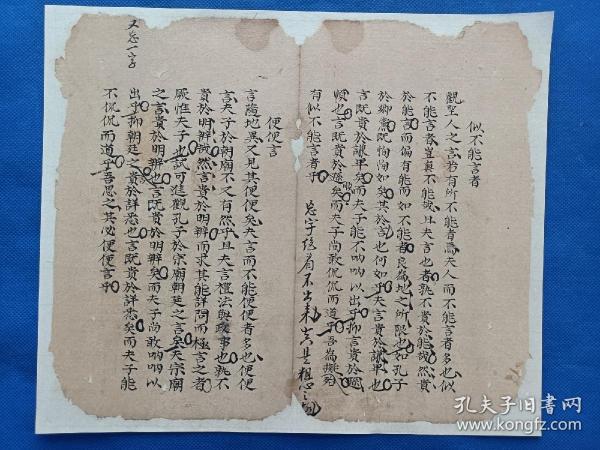 似不能言者
觀聖人之言若有所不能者焉夫人而不能言者多也似
不能言者豈真不能哉且夫言也者孰不貴於能哉然貴
於能言而偏有能而如不能者良為地之所限也如孔子
於鄉黨既恂恂如矣其於言也何如乎夫言貴於謙卑也
言既貴於謙卑矣而夫子能不吶吶以出乎抑言貴於遜
順也言既貴於遜矣而夫子尚敢侃侃而道乎吾為擬
有似不能言者乎
總字後看不出來
便便言
言隨地異又見其便便矣夫言而不能便便者多也便便
言夫子於朝廟不又有然乎且夫言禮法與政事也孰不
貴於明辨哉然言貴於明辨而求其能詳問而極言之者
厥惟夫子也試可進觀孔子於宗廟朝廷之言矣夫宗廟
之言貴於明辨也言既貴於明辨矣而夫子尚敢吶吶以
出乎抑朝廷之貴於詳悉也言既貴於詳悉矣而夫子能
不侃侃而道乎吾思之其必便便言乎
又忘一字
孔夫子旧书网
www.kongfz.com